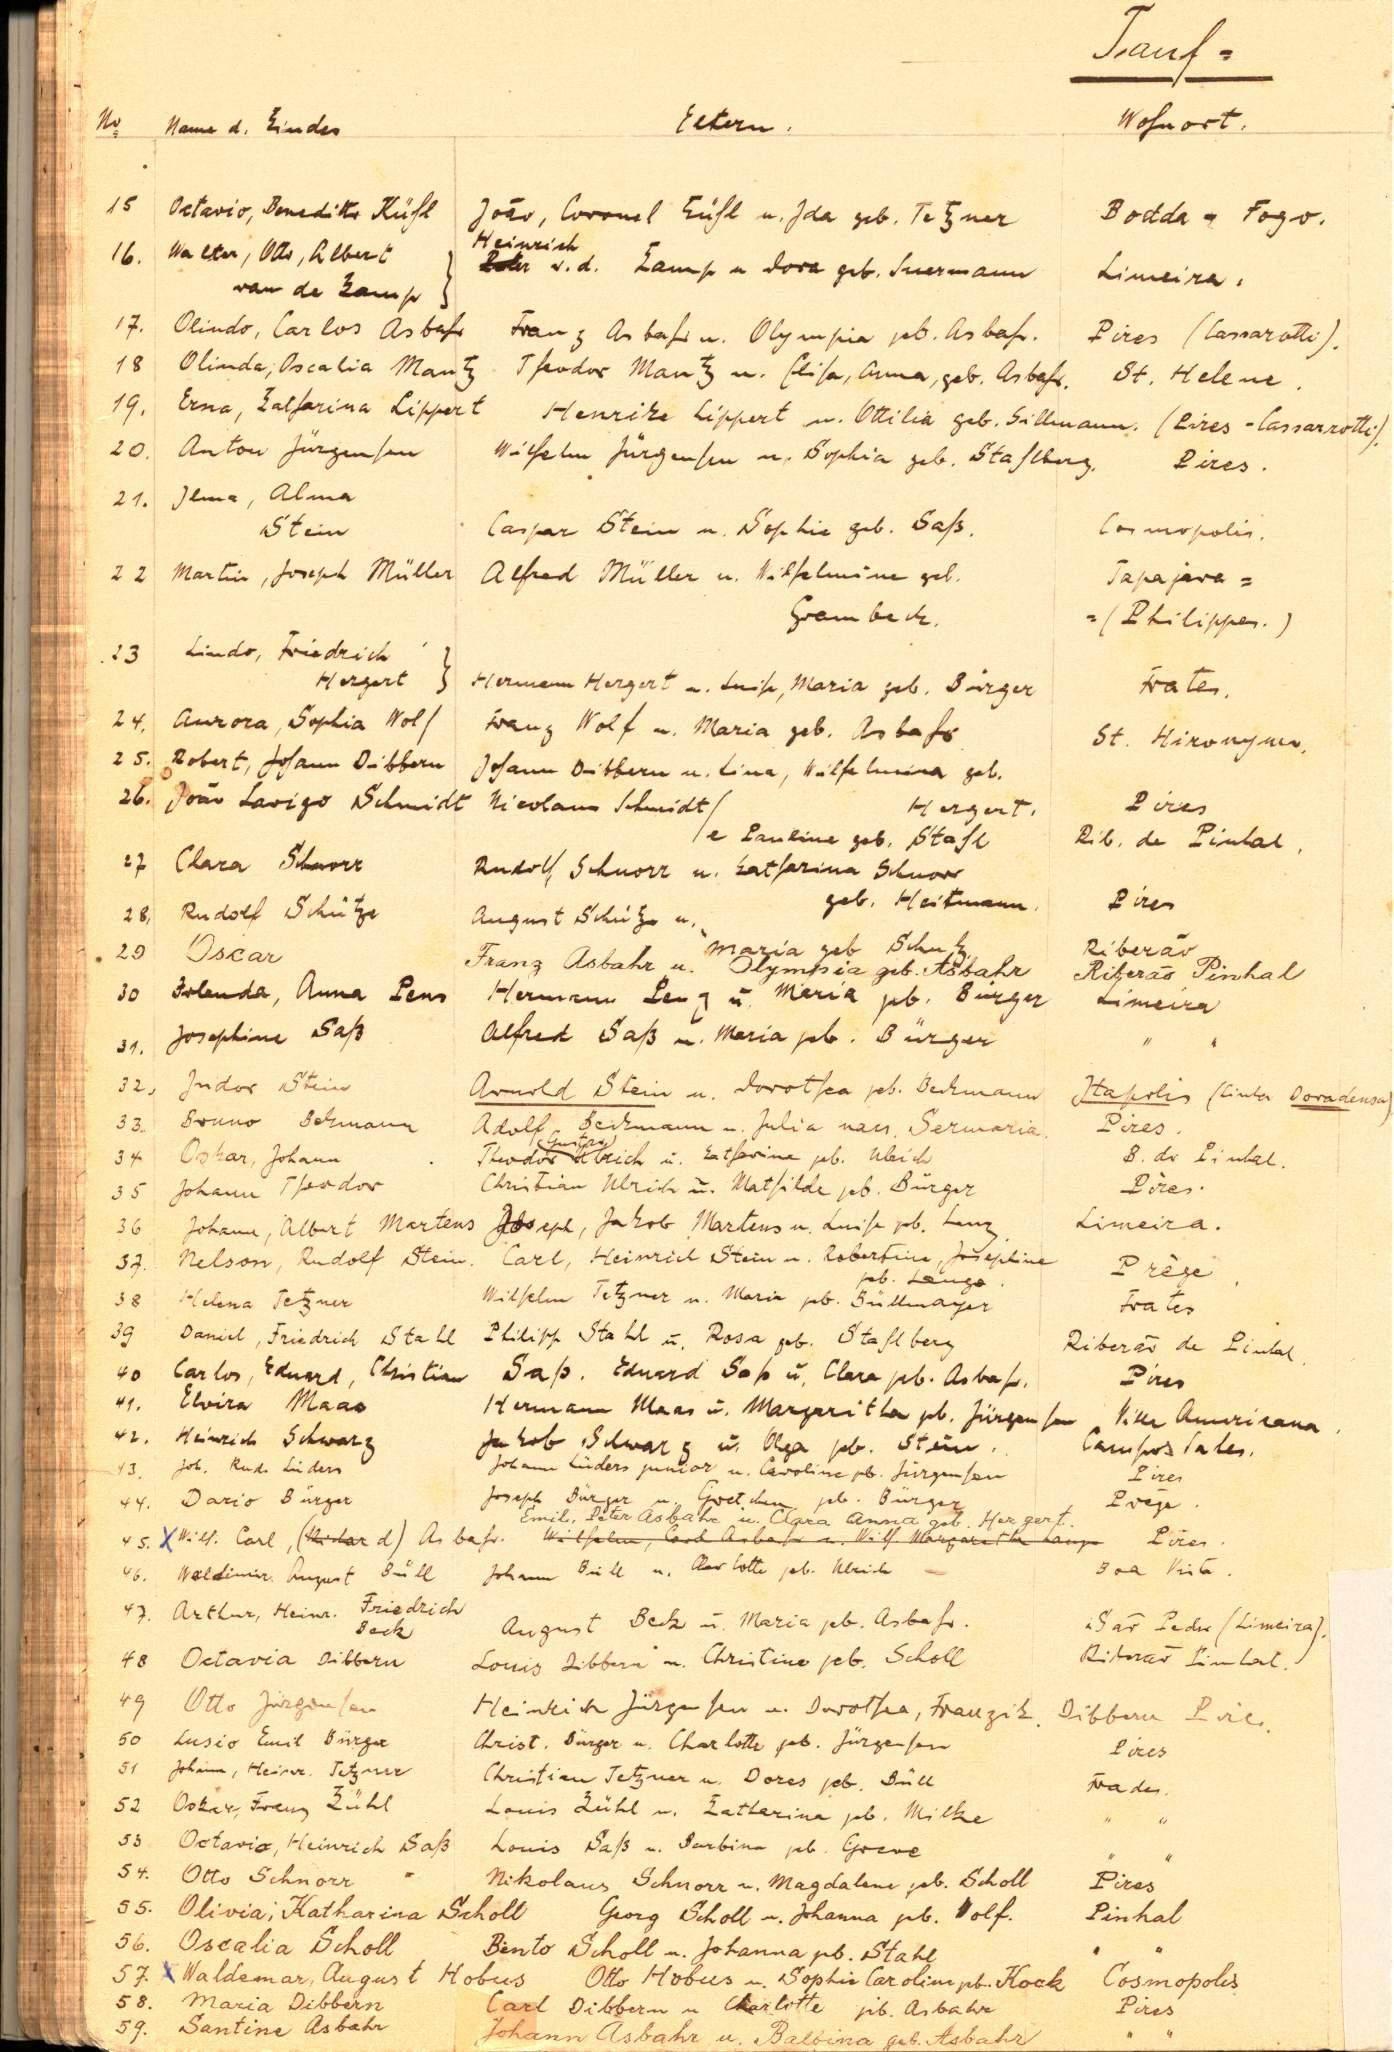 Tauf=
No Name d. Kindes Eltern. Wohnort.
15 Octavio, Benedikto Kühl João, Coronel Kühl u. Ida geb. Tetzner Fogo.
16. Walter, Otto, Albert Heinrich
van de Kamp v. d. Kamp u Dora geb. Suermann Limeira.
17. Olindo, Carlos Asbahr Franz Asbahr u. Olympia geb. Asbahr. Pires (Cassarotti).
18 Olinda, Oscalia Mantz Theodor Mantz u. Elisa, Anna, geb. Asbahr. St. Helene.
19. Erna, Katharina Lippert Henrike Lippert u. Ottilia geb. Sillmann. (Pires - Cassarrotti).
20. Anton Jürgensen Wilhelm Jürgensen u. Sophia geb. Stahlberg. Pires.
21. Ilma, Alma
Stein Caspar Stein u. Sophie geb. Saß. Cosmopolis.
22 Martin, Joseph Müller Alfred Müller u. Wilhelmine geb. Tapajara =
Grambeck. = (Philippes.)
23 Lindo, Friedrich
Hergert Hermann Hergert u. Luise, Maria geb. Bürger Frates.
24. Aurora, Sophia Wolf Franz Wolf u. Maria geb. Asbahr St. Hironymo.
25. Robert, Johann Dibbern Johann Dibbern u. Lina, Wilhelmina geb.
Hergert. Pires
26. João Lavigo Schmidt Nicolaus Schmidt
e Pauline geb. Stahl Rib. de Pinhal.
27 Clara Schnorr Rudolf Schnorr u. Katharina Schnorr
geb. Heitmann. Pires
28. Rudolf Schütze August Schütze u.
Maria geb Schutz Riberão
29 Oscar Franz Asbahr u. Olympia geb. Asbahr Riberão Pinhal
30 Iolanda, Anna Lens Hermann Lenz u. Maria geb. Bürger Limeira
31. Josephine Saß Alfred Saß u. Maria geb. Bürger " "
32, Isidor Stein Arnold Stein u. Dorothea geb. Beckmann Itapolis (Linha Doradensa)
33. Bruno Bekmann Adolf Beckmann u. Julia nasc. Sermaria. Pires.
(Gustav)
34 Oskar, Johann Theodor Ulrich u. Katharine geb. Ulrich B. do Pinhal.
35 Johann Theodor Christian Ulrich u. Mathilde geb. Bürger Pires.
36 Johann, Albert Martens Joseph, Jakob Martens u. Luise geb. Lenz Limeira.
37. Nelson, Rudolf Stein. Carl, Heinrich Stein u. Robertine, Josephine
geb. Lange. Prêge
38 Helena Tetzner Wilhelm Tetzner u. Maria geb. Büllmayer Frates
39 Daniel, Friedrich Stahl Philipp Stahl u. Rosa geb. Stahlberg Riberão de Pinhal.
40 Carlos, Eduard, Christian Saß. Eduard Saß u. Clara geb. Asbahr. Pires
41. Elvira Maas Hermann Maas u. Margaritha geb. Jürgensen Villa Americana.
42. Heinrich Schwarz Jakob Schwarz u. Olga geb. Stein. Campos Sales.
43. Joh. Rud. Lüders Johann Lüders junior u. Caroline geb. Jürgensen Pires
44. Dario Bürger Joseph Bürger u. Gretchen geb. Bürger Prêge.
Emil, Peter Asbahr u. Clara Anna geb. Hergert.
45. X Wilh. Carl, (Rikard) Asbahr. Wilhelm, Carl Asbahr u. Wilh Margaretha Lange Pires.
46. Waldimir August Büll Johann Büll u. Charlotte geb. Ulrich Boa Vista.
47. Arthur, Heinr. Friedrich
Beck August Beck u. Maria geb. Asbahr. Saõ Pedro (Limeira).
48 Octavia Dibbern Louis Dibbern u. Christine geb. Scholl Riberaõ Pinhal.
49 Otto Jürgensen Heinrich Jürgensen u. Dorothea, Franzisk. Dibbern Pires.
50 Lusio Emil Bürger Christ. Bürger u. Charlotte geb. Jürgensen Pires
51 Johann, Heinr. Tetzner Christian Tetzner u. Dores geb. Büll Frades.
52 Oskar, Franz Kühl Louis Kühl u. Katharina geb. Milke " "
53 Octavio, Heinrich Saß Louis Saß u. Barbina geb. Greve " "
54. Otto Schnorr Nikolaus Schnorr u. Magdalene geb. Scholl Pires
55. Olivia, Katharina Scholl Georg Scholl u. Johanna geb. Wolf. Pinhal
56. Oscalia Scholl Bento Scholl u. Johanna geb. Stahl " "
57. X Waldemar, August Hobus Otto Hobus u. Sophie Caroline geb. Kock Cosmopolis
58. Maria Dibbern Carl Dibbern u Charlotte geb. Asbahr Pires
59. Santine Asbahr Johann Asbahr u. Balbina geb. Asbahr " "